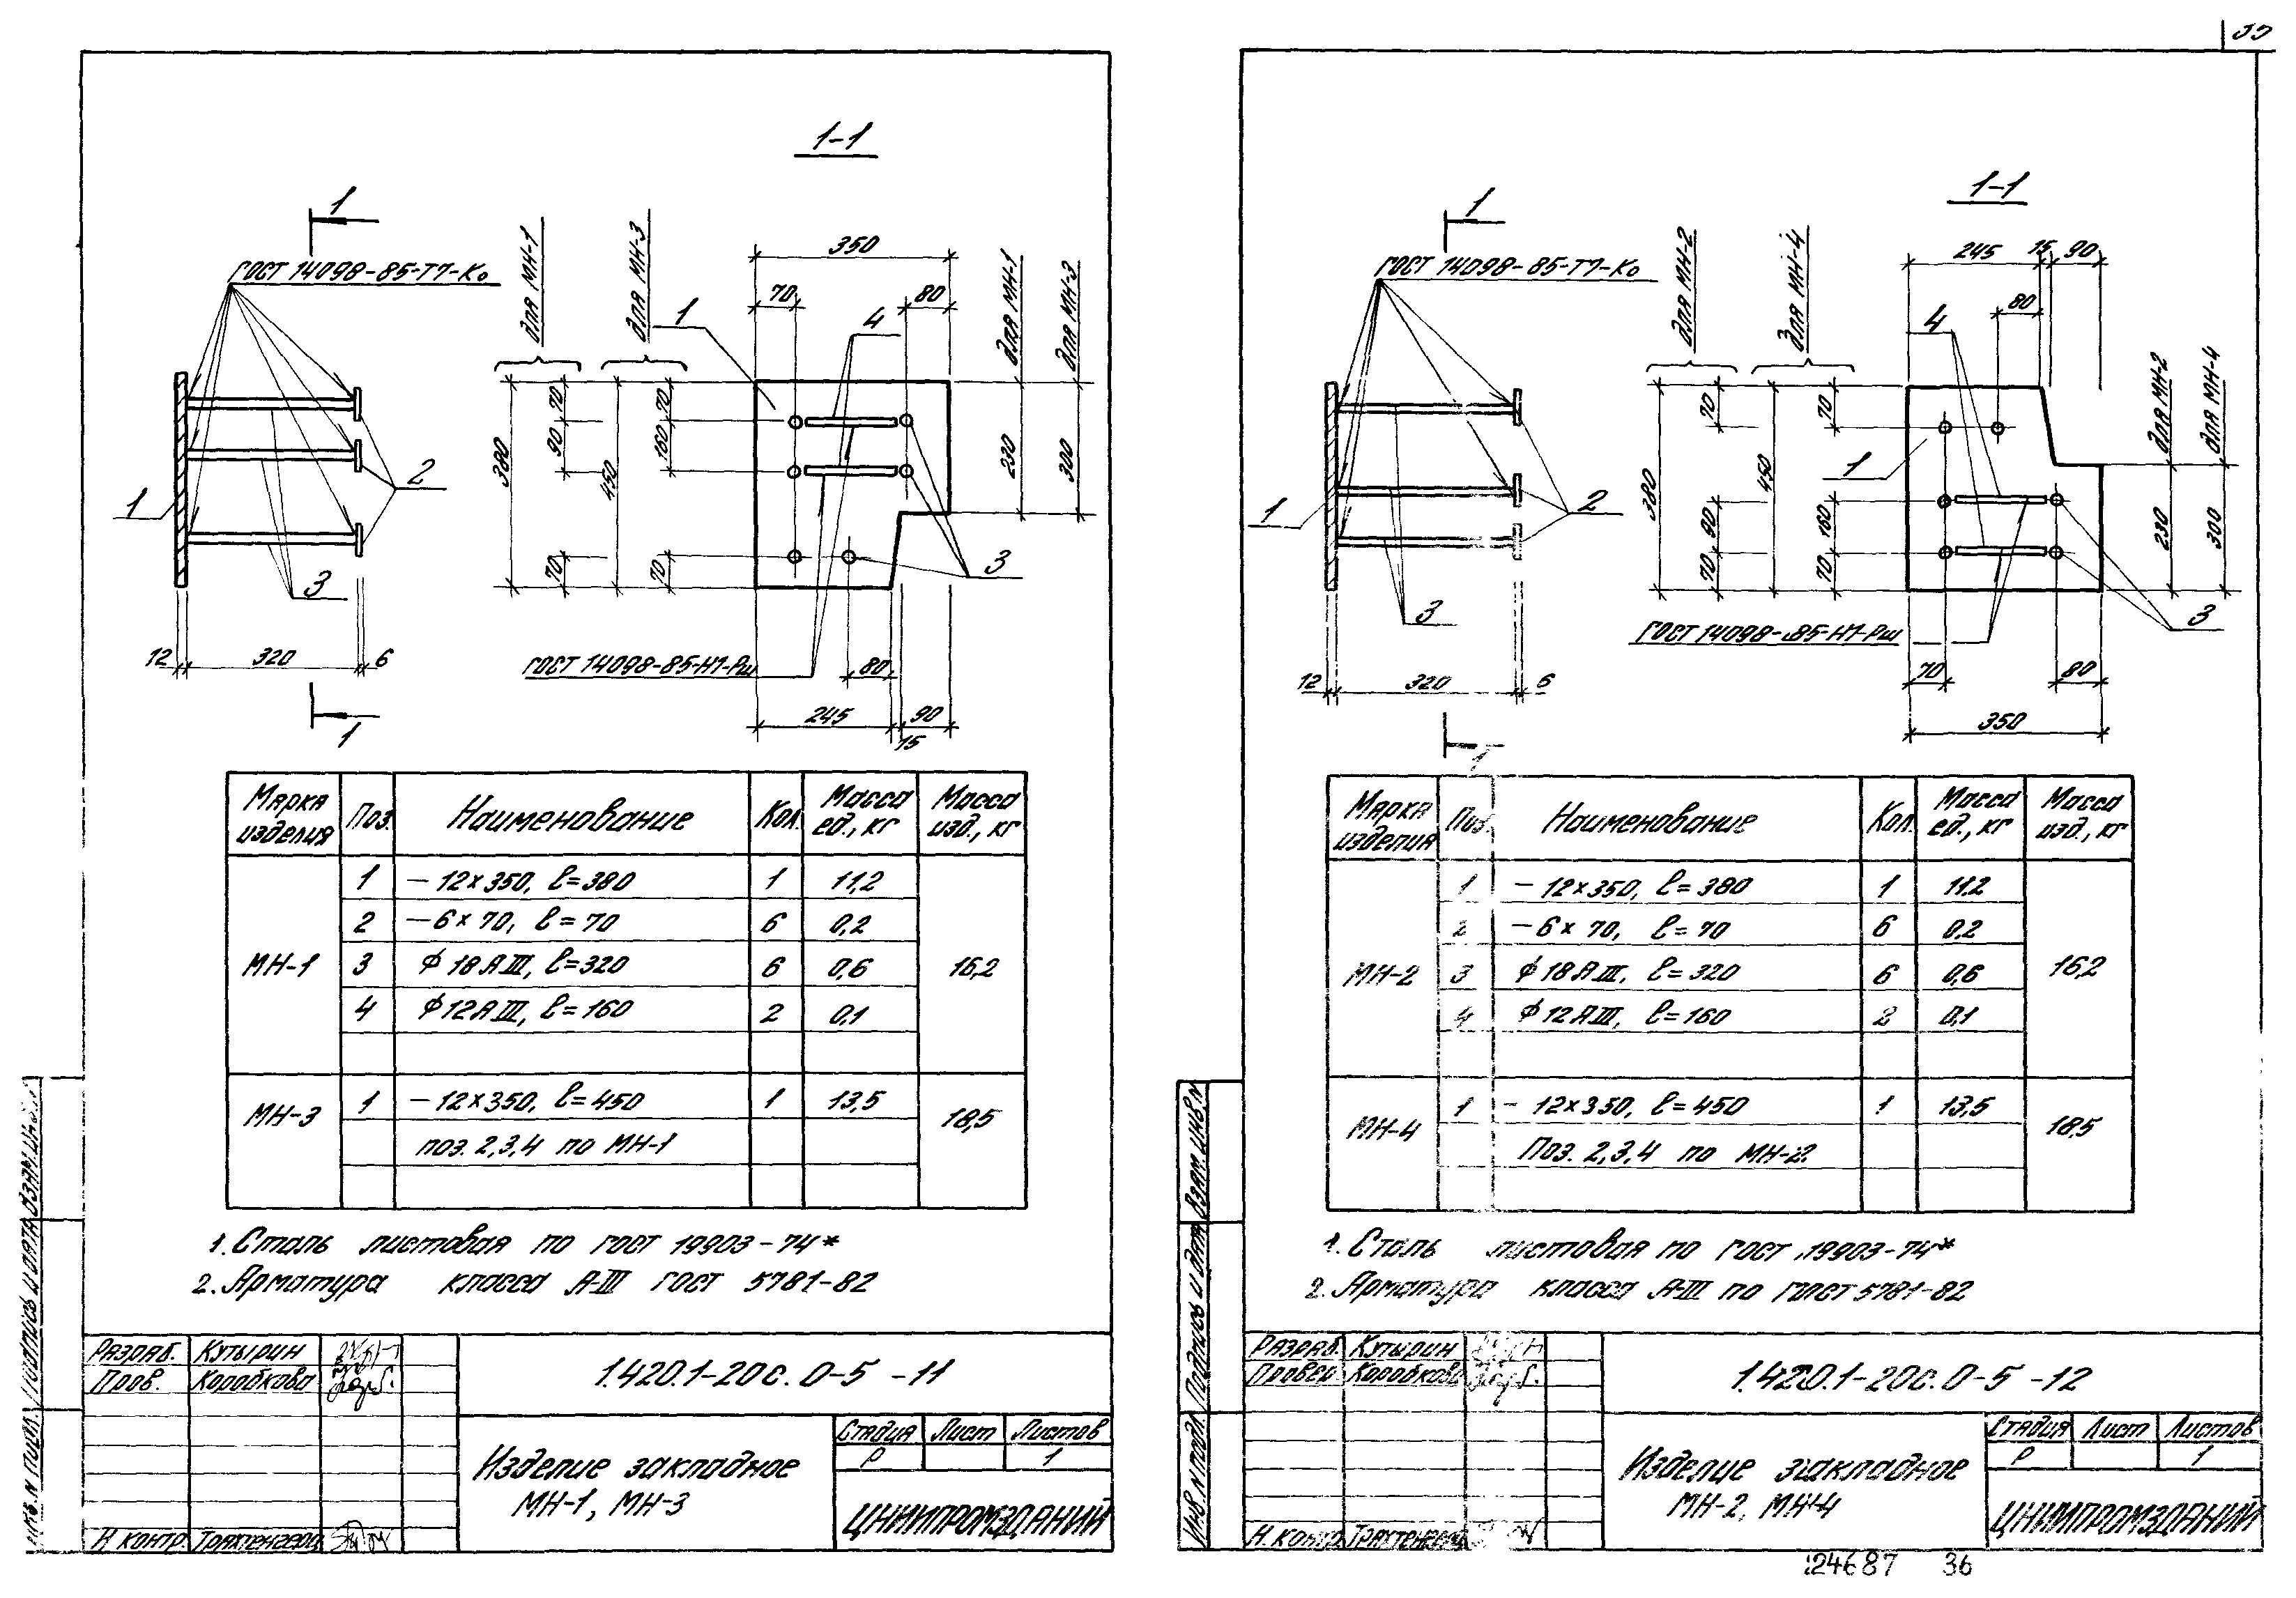 1-1
1
ГОСТ 14098-85-Т1-Ко
для МН-1
для МН-3
350
70
80
4
1
для МН-1
для МН-3
380
70
90
70
450
70
160
70
230
300
1
2
3
3
12
320
6
1
ГОСТ 14098-85-Н1-Рш
80
245
90
15
Марка изделия
Поз.
Наименование
Кол.
Масса ед., кг
Масса изд., кг
МН-1
1 — 12×350, ℓ=380 1 11,2
2 — 6×70, ℓ=70 6 0,2
3 ϕ 18 АIII, ℓ=320 6 0,6
16,2
4 ϕ 12 АIII, ℓ=160 2 0,1
МН-3
1 — 12×350, ℓ=450 1 13,5
18,5
поз. 2,3,4 по МН-1
1. Сталь листовая по ГОСТ 19903-74*
2. Арматура класса А-III ГОСТ 5781-82
Разраб. Кутырин
Пров. Коробкова
Н контр.
1.420.1-20с.0-5 -11
Изделие закладное
МН-1, МН-3
Стадия Лист Листов
Р 1
ЦНИИПРОМЗДАНИЙ
1-1
1
ГОСТ 14098-85-Т1-Ко
для МН-2
для МН-4
245
15
90
80
4
1
для МН-2
для МН-4
380
70
90
70
450
70
160
70
230
300
1
2
3
3
12
320
6
1
ГОСТ 14098-85-Н1-Рш
70
80
350
Марка изделия
Поз.
Наименование
Кол.
Масса ед., кг
Масса изд., кг
МН-2
1 — 12×350, ℓ=380 1 11,2
2 — 6×70, ℓ=70 6 0,2
3 ϕ 18 АIII, ℓ=320 6 0,6
16,2
4 ϕ 12 АIII, ℓ=160 2 0,1
МН-4
1 - 12×350, ℓ=450 1 13,5
18,5
Поз. 2,3,4 по МН-2
1. Сталь листовая по ГОСТ 19903-74*
2. Арматура класса А-III по ГОСТ 5781-82
Взам. инв. №
Подпись и дата
Инв. № подл.
Разраб. Кутырин
Провер. Коробкова
Н. контр.
1.420.1-20с.0-5 -12
Изделие закладное
МН-2, МН-4
Стадия Лист Листов
Р 1
ЦНИИПРОМЗДАНИЙ
24687 36